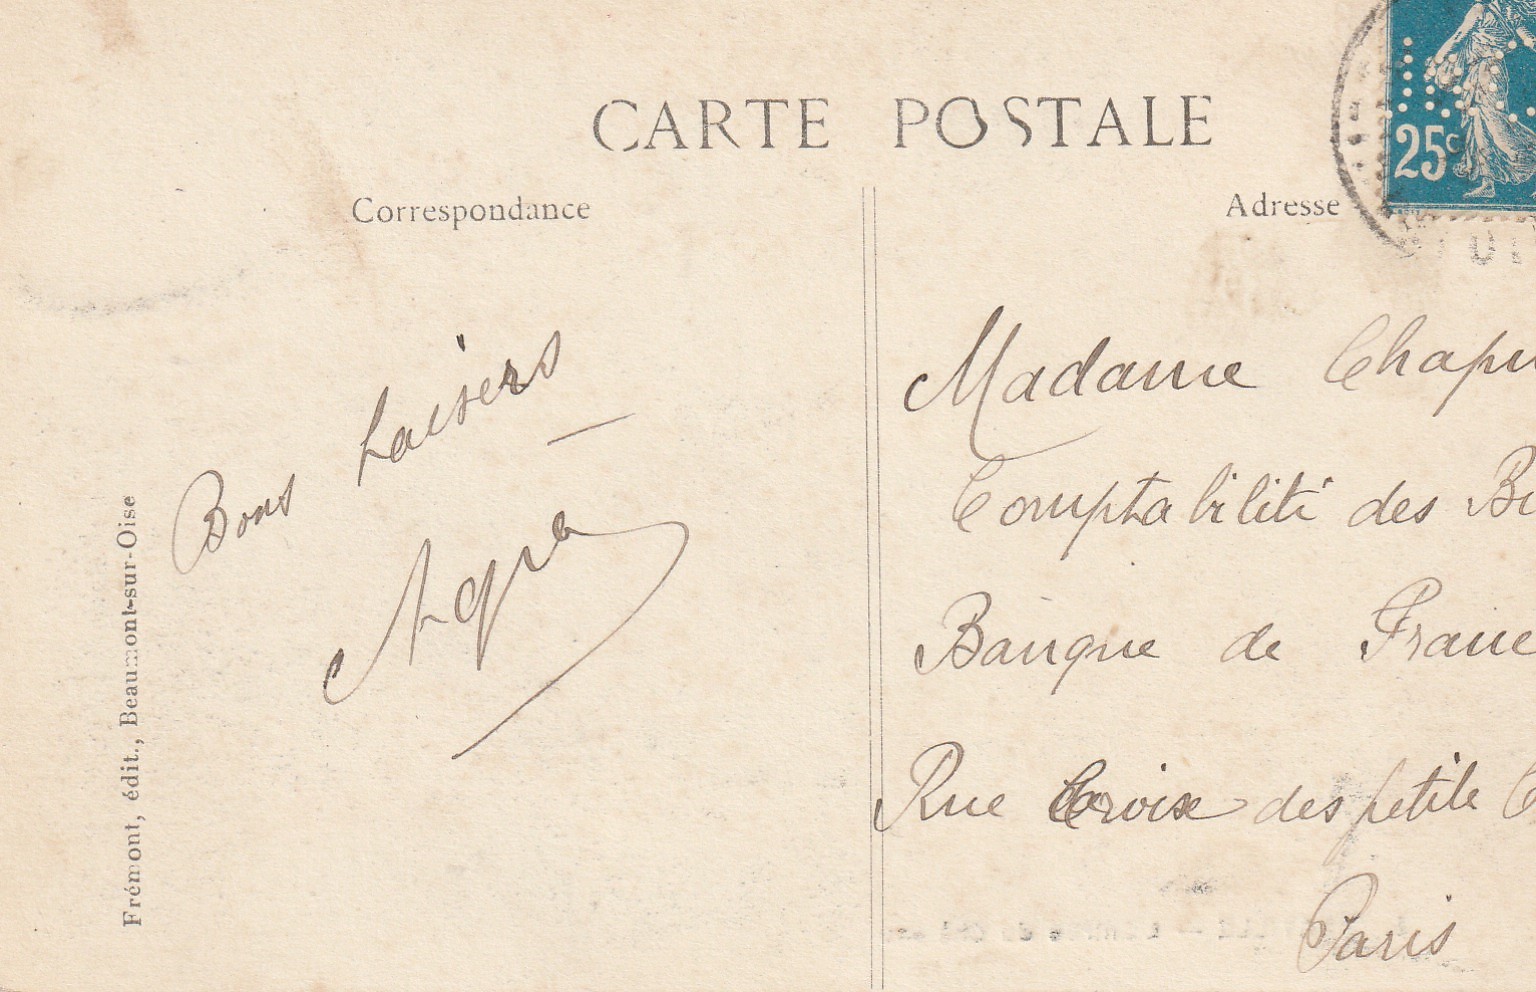 CARTE POSTALE
Correspondance
Adresse
25c
Bons baisers
Madame Chapu
Comptabilité des Bi
Banque de France
Rue Croix des petits C
Paris
Frémont, édit., Beaumont-sur-Oise